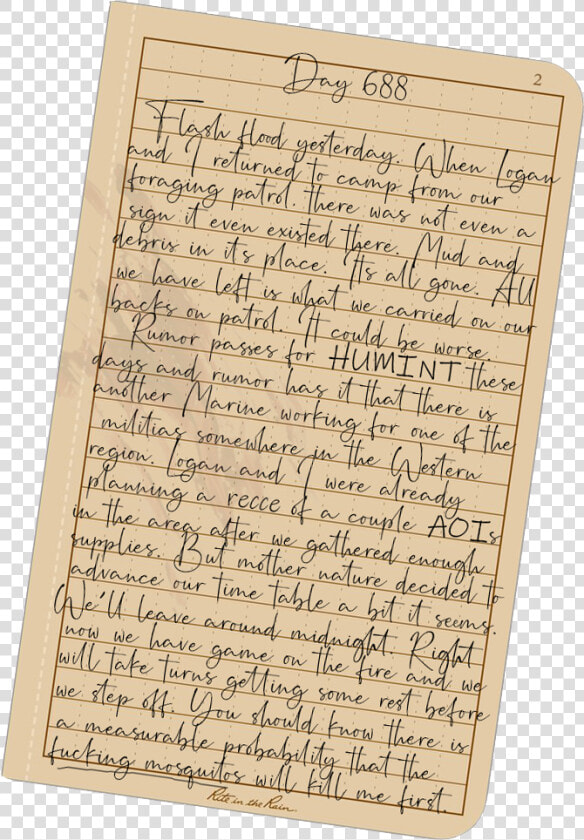 2
Day 688
Flash flood yesterday. When Logan
and I returned to camp from our
foraging patrol. there was not even a
sign it even existed there. Mud and
debris in its place. Its all gone. All
we have left is what we carried on our
backs on patrol. It could be worse.
Rumor passes for HUMINT these
days and rumor has it that there is
another Marine working for one of the
militias somewhere in the Western
region. Logan and I were already
planning a recce of a couple AOIs
in the area after we gathered enough
supplies. But mother nature decided to
advance our time table a bit it seems.
We'll leave around midnight. Right
now we have game on the fire and we
will take turns getting some rest before
we step off. You should know there is
a measurable probability that the
fucking mosquitos will kill me first.
Rite in the Rain